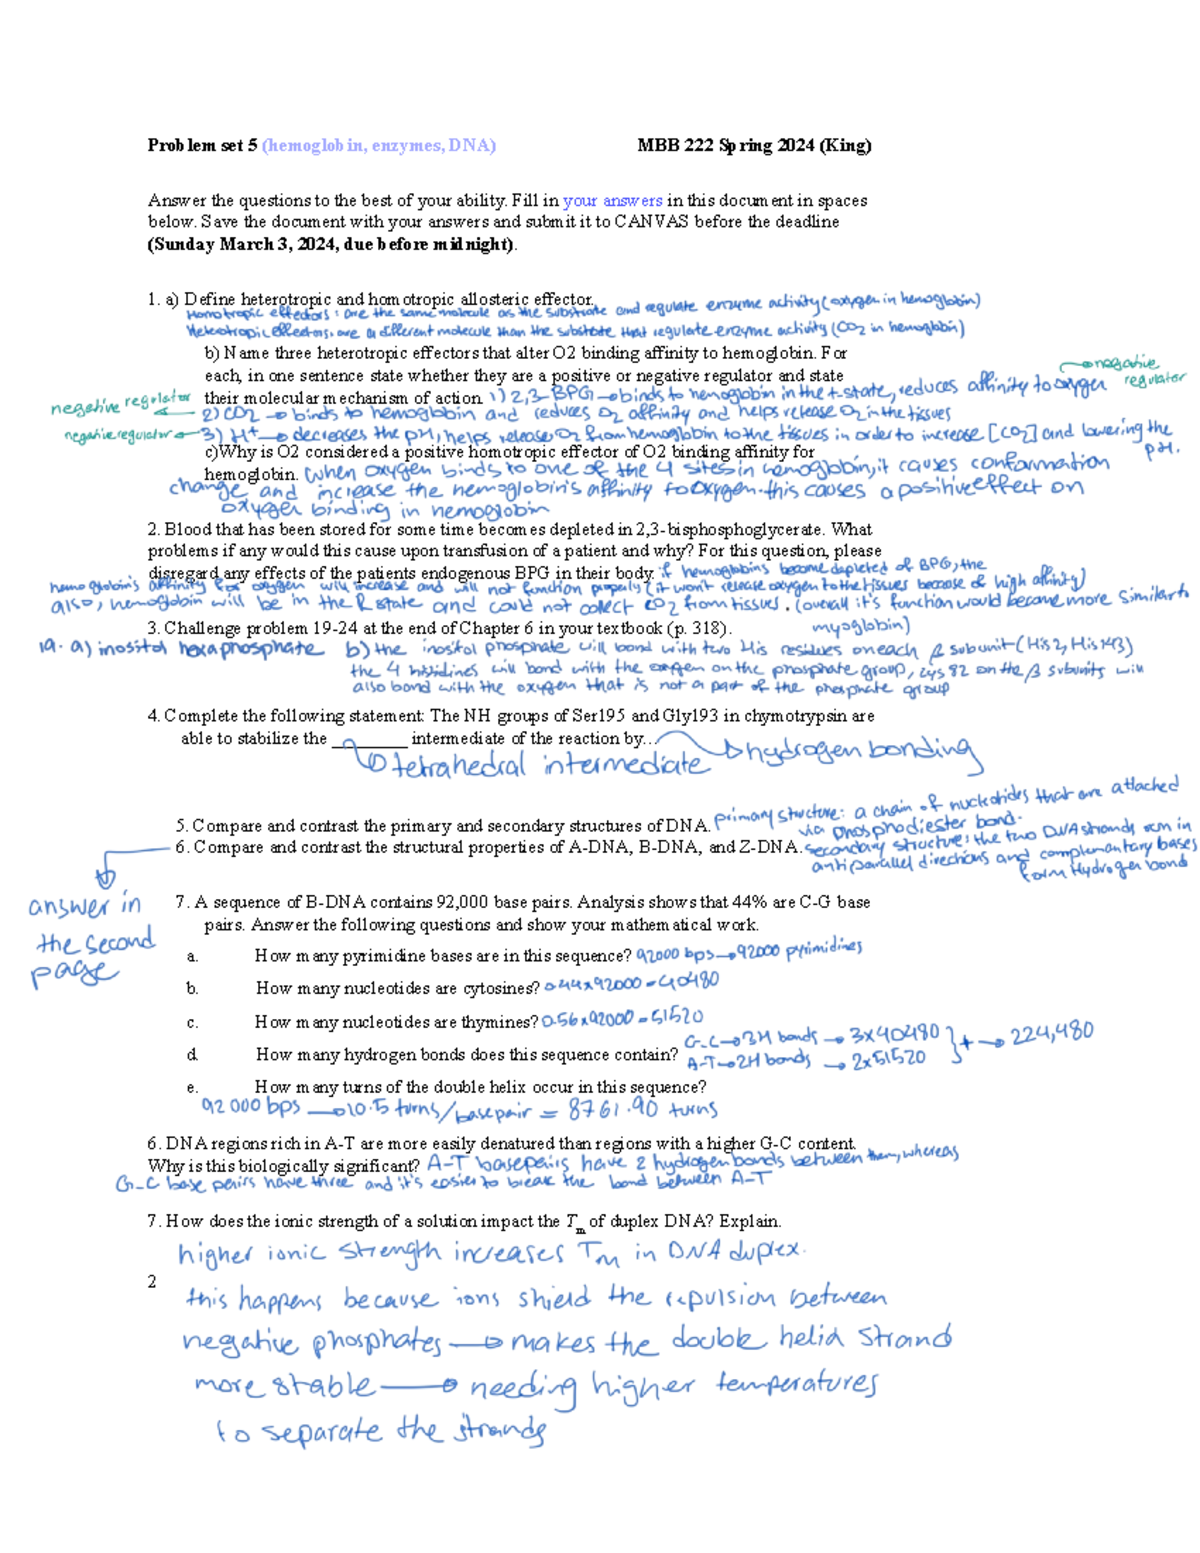 Problem set 5 (hemoglobin, enzymes, DNA) MBB 222 Spring 2024 (King)
Answer the questions to the best of your ability. Fill in your answers in this document in spaces
below. Save the document with your answers and submit it to CANVAS before the deadline
(Sunday March 3, 2024, due before midnight).
1. a) Define heterotropic and homotropic allosteric effector.
Homotropic effectors: are the same molecule as the substrate and regulate enzyme activity (oxygen in hemoglobin)
Heterotropic effectors: are a different molecule than the substrate that regulate enzyme activity (CO2 in hemoglobin)
b) Name three heterotropic effectors that alter O2 binding affinity to hemoglobin. For
each, in one sentence state whether they are a positive or negative regulator and state
their molecular mechanism of action. 1) 2,3-BPG → binds to hemoglobin in the t-state, reduces affinity to oxygen → negative regulator
negative regulator ← 2) CO2 → binds to hemoglobin and reduces O2 affinity and helps release O2 in the tissues
negative regulator ← 3) H+ → decreases the pH, helps release O2 from hemoglobin to the tissues in order to increase [CO2] and lowering the pH.
c)Why is O2 considered a positive homotropic effector of O2 binding affinity for
hemoglobin. When oxygen binds to one of the 4 sites in hemoglobin, it causes conformation
change and increase the hemoglobin's affinity to oxygen. this causes a positive effect on
oxygen binding in hemoglobin
2. Blood that has been stored for some time becomes depleted in 2,3-bisphosphoglycerate. What
problems if any would this cause upon transfusion of a patient and why? For this question, please
disregard any effects of the patients endogenous BPG in their body. if hemoglobins become depleted of BPG, the
hemoglobin's affinity for oxygen will increase and will not function properly (it won't release oxygen to the tissues because of high affinity)
also, hemoglobin will be in the R state and could not collect CO2 from tissues. (overall it's function would become more similar to
myoglobin)
3. Challenge problem 19-24 at the end of Chapter 6 in your textbook (p. 318).
19. a) inositol hexaphosphate b) the inositol phosphate will bond with two His residues on each β subunit (His 2, His 143)
the 4 histidines will bond with the oxygen on the phosphate group, Lys 82 on the β subunits will
also bond with the oxygen that is not a part of the phosphate group
4. Complete the following statement: The NH groups of Ser195 and Gly193 in chymotrypsin are
able to stabilize the ________ intermediate of the reaction by...
→ tetrahedral intermediate → hydrogen bonding
5. Compare and contrast the primary and secondary structures of DNA. primary structure: a chain of nucleotides that are attached
via phosphodiester bond.
6. Compare and contrast the structural properties of A-DNA, B-DNA, and Z-DNA. secondary structure: the two DNA strands run in
antiparallel directions and complementary bases
form Hydrogen bond
answer in
the second
page
7. A sequence of B-DNA contains 92,000 base pairs. Analysis shows that 44% are C-G base
pairs. Answer the following questions and show your mathematical work.
a. How many pyrimidine bases are in this sequence? 92000 bps → 92000 pyrimidines
b. How many nucleotides are cytosines? 0.44x92000 = 40480
c. How many nucleotides are thymines? 0.56x92000 = 51520
d. How many hydrogen bonds does this sequence contain? G-C → 3H bonds → 3x40480 } + → 224,480
A-T → 2H bonds → 2x51520
e. How many turns of the double helix occur in this sequence?
92000 bps → 10.5 turns/basepair = 8761.90 turns
6. DNA regions rich in A-T are more easily denatured than regions with a higher G-C content.
Why is this biologically significant? A-T basepairs have 2 hydrogen bonds between them, whereas
G-C base pairs have three and it's easier to break the bond between A-T
7. How does the ionic strength of a solution impact the Tm of duplex DNA? Explain.
higher ionic strength increases Tm in DNA duplex.
2
this happens because ions shield the repulsion between
negative phosphates → makes the double helid strand
more stable → needing higher temperatures
to separate the strands